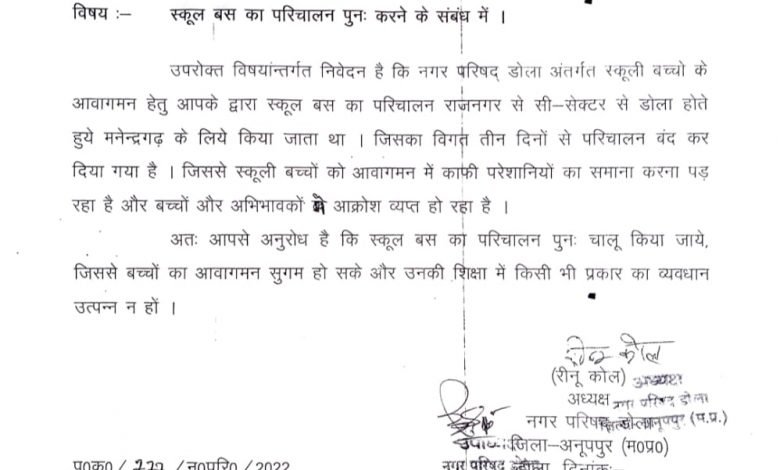 विषय :– स्कूल बस का परिचालन पुनः करने के संबंध में ।
उपरोक्त विषयांन्तर्गत निवेदन है कि नगर परिषद् डोला अंतर्गत स्कूली बच्चो के
आवागमन हेतु आपके द्वारा स्कूल बस का परिचालन राजनगर से सी–सेक्टर से डोला होते
हुये मनेन्द्रगढ़ के लिये किया जाता था । जिसका विगत तीन दिनों से परिचालन बंद कर
दिया गया है । जिससे स्कूली बच्चों को आवागमन में काफी परेशानियों का समाना करना पड़
रहा है और बच्चों और अभिभावकों में आक्रोश व्यप्त हो रहा है ।
अतः आपसे अनुरोध है कि स्कूल बस का परिचालन पुनः चालू किया जाये,
जिससे बच्चों का आवागमन सुगम हो सके और उनकी शिक्षा में किसी भी प्रकार का व्यवधान
उत्पन्न न हों ।
रीनू कोल
(रीनू कोल) अध्यक्ष
अध्यक्ष नगर परिषद डोला
नगर परिषद् डोला अनूपपुर (म.प्र.)
उपाध्यक्ष जिला–अनूपपुर (म०प्र०)
नगर परिषद दिनांक:–
/न०परि० / 2022